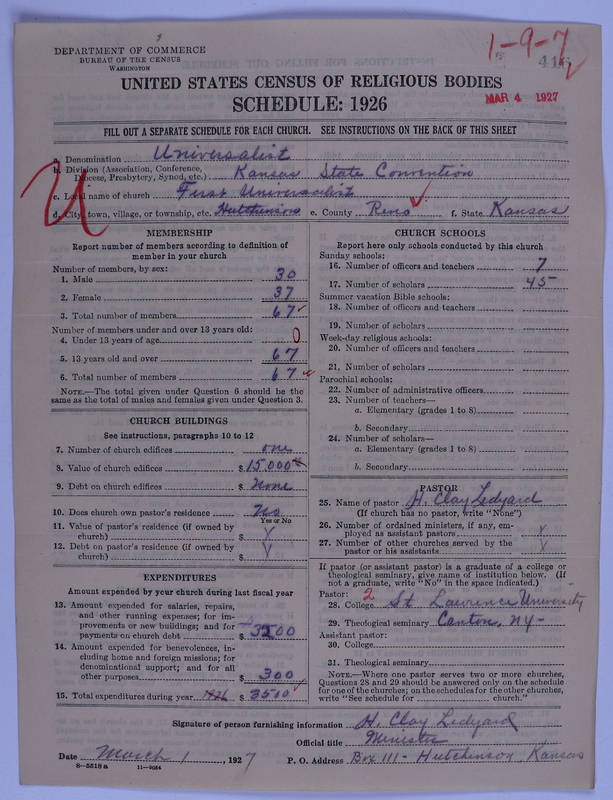 DEPARTMENT OF COMMERCE
BUREAU OF THE CENSUS
WASHINGTON
1-9-7
416
MAR 4 1927
UNITED STATES CENSUS OF RELIGIOUS BODIES
SCHEDULE: 1926
FILL OUT A SEPARATE SCHEDULE FOR EACH CHURCH. SEE INSTRUCTIONS ON THE BACK OF THIS SHEET
U
a. Denomination Universalist
b. Division (Association, Conference, Diocese, Presbytery, Synod, etc.) Kansas State Convention
c. Local name of church First Universalist
d. City, town, village, or township, etc. Hutchinson e. County Reno f. State Kansas
MEMBERSHIP
Report number of members according to definition of
member in your church
Number of members, by sex:
1. Male 30
2. Female 37
3. Total number of members 67
Number of members under and over 13 years old:
4. Under 13 years of age 0
5. 13 years old and over 67
6. Total number of members 67
NOTE.—The total given under Question 6 should be
same as the total of males and females given under Question 3.
CHURCH BUILDINGS
See instructions, paragraphs 10 to 12
7. Number of church edifices one
8. Value of church edifices $ 15,000
9. Debt on church edifices $ None
10. Does church own pastor's residence? No
Yes or No
11. Value of pastor's residence (if owned by
church) $ X
12. Debt on pastor's residence (if owned by
church) $ X
EXPENDITURES
Amount expended by your church during last fiscal year
13. Amount expended for salaries, repairs,
and other running expenses; for im-
provements or new buildings; and for
payments on church debt $ 3200
14. Amount expended for benevolences, in-
cluding home and foreign missions; for
denominational support; and for all
other purposes $ 300
15. Total expenditures during year $ 3500
CHURCH SCHOOLS
Report here only schools conducted by this church
Sunday schools:
16. Number of officers and teachers 7
17. Number of scholars 45
Summer vacation Bible schools:
18. Number of officers and teachers
19. Number of scholars
Week-day religious schools:
20. Number of officers and teachers
21. Number of scholars
Parochial schools:
22. Number of administrative officers
23. Number of teachers—
a. Elementary (grades 1 to 8)
b. Secondary
24. Number of scholars—
a. Elementary (grades 1 to 8)
b. Secondary
PASTOR
25. Name of pastor H. Clay Ledyard
(If church has no pastor, write "None")
26. Number of ordained ministers, if any, em-
ployed as assistant pastors X
27. Number of other churches served by the
pastor or his assistants X
If pastor (or assistant pastor) is a graduate of a college or
theological seminary, give name of institution below. (If
not a graduate, write "No" in the space indicated.)
Pastor: 2
28. College St Lawrence University
29. Theological seminary Canton, N.Y-
Assistant pastor:
30. College
31. Theological seminary
NOTE.—Where one pastor serves two or more churches,
Questions 28 and 29 should be answered only on the schedule
for one of the churches; on the schedules for the other churches,
write "See schedule for church."
Signature of person furnishing information H. Clay Ledyard
Official title Minister
Date March 1, 1927 P. O. Address Box 111 - Hutchinson Kansas
8—5518 a 11—9034